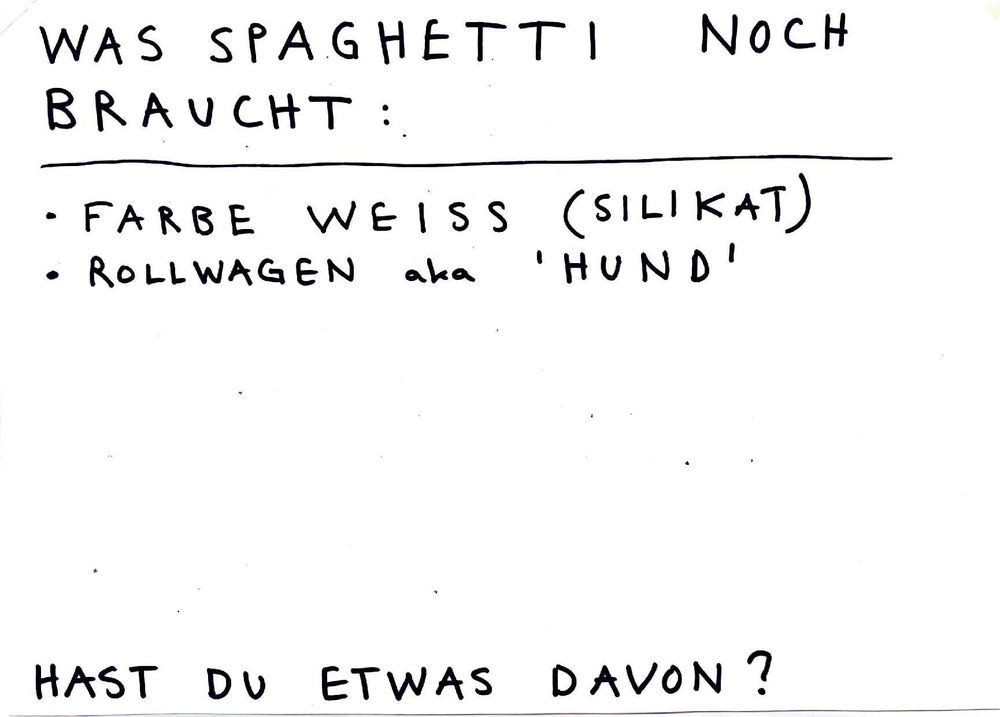 WAS SPAGHETTI NOCH
BRAUCHT:
• FARBE WEISS (SILIKAT)
• ROLLWAGEN aka 'HUND'
HAST DU ETWAS DAVON?